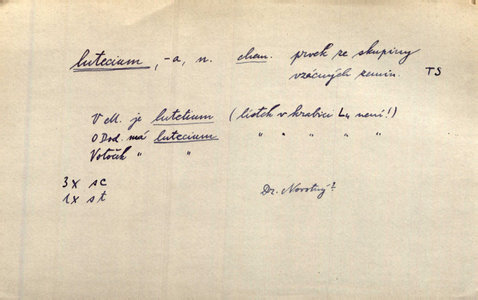 lutecium, -a, n. chem. prvek ze skupiny
vzácných zemin. TS
V M. je lutetium (lístek v krabici L4 není!)
O Dod. má lutecium " " " " "
Votoček " "
3x sc
1x st
Dr. Novotný?